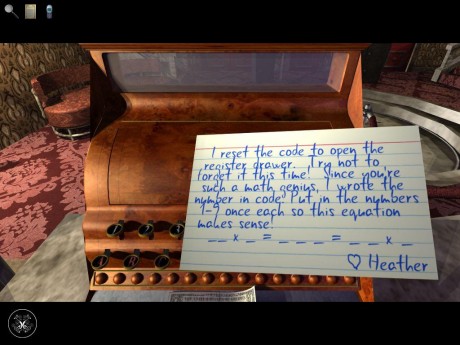 I reset the code to open the
register drawer. Try not to
forget it this time! Since you're
such a math genius, I wrote the
number in code. Put in the numbers
1-9 once each so this equation
makes sense:
_ _ x _ = _ _ _ = _ _ x _
♡ Heather